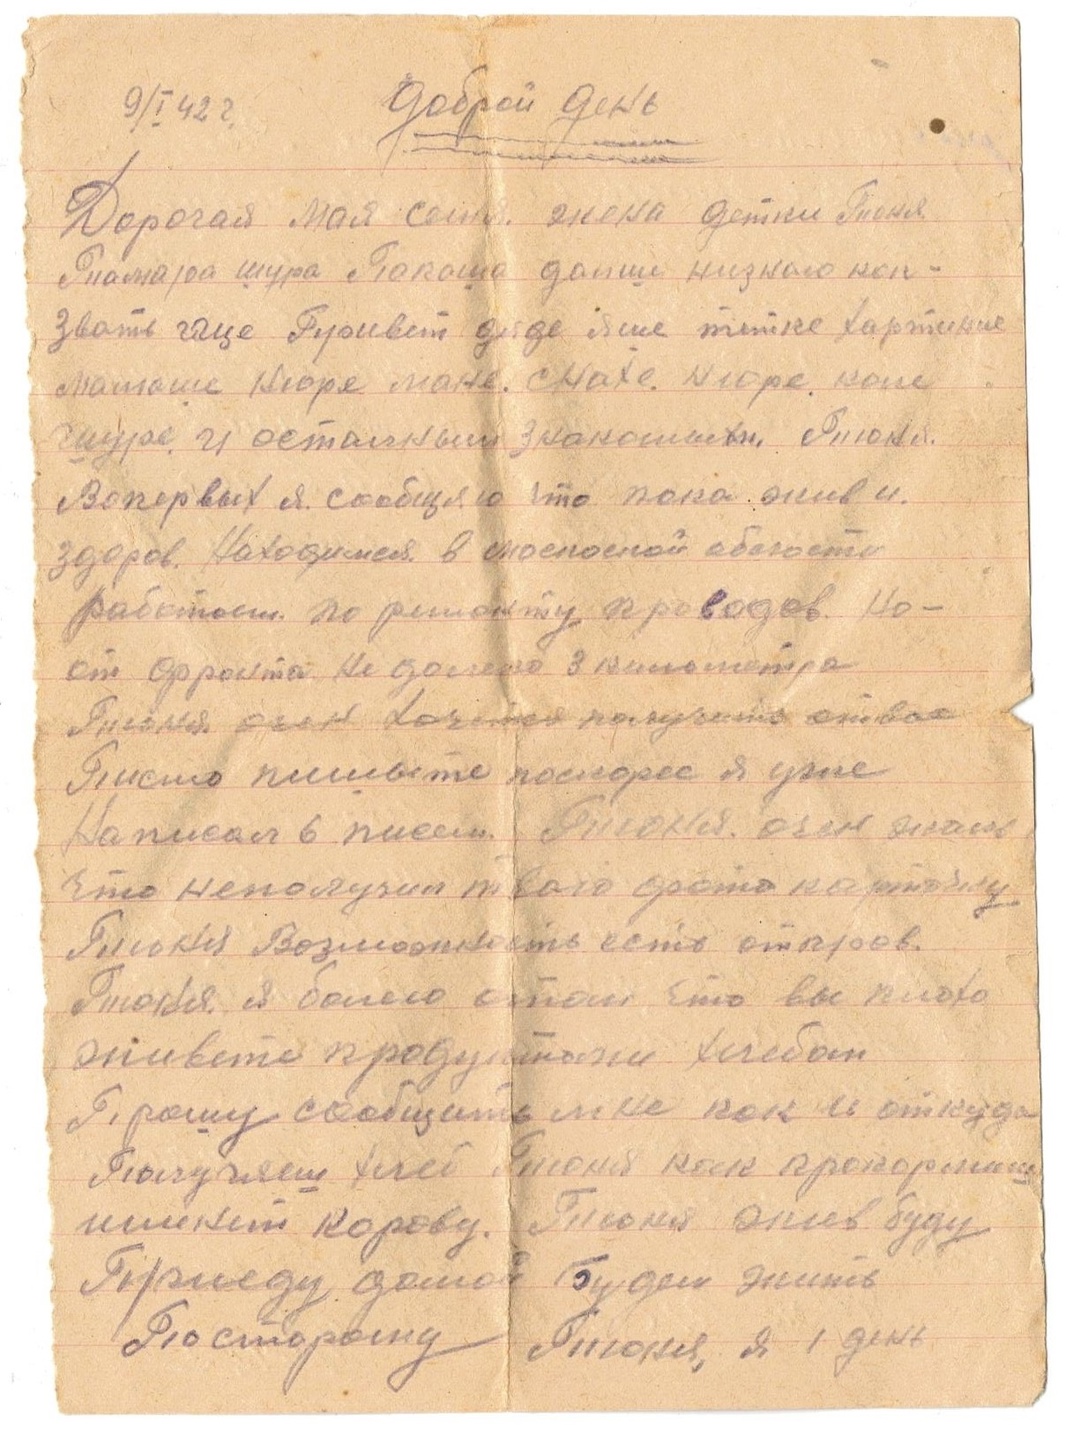 9/I 42 г. Доброй день
Дорогая мая семя. жена детки Тоня
Тамара шура Папаша
звать чаще Привет дяде яше тетке
мамаше Нюре мане. снахе. Нюре коле
шуре. и остальным знакомым. Тоня.
Вопервых я. сообщяю что пока жив и.
здоров. Находимся в московской области
работаем. по ремонту проводов. Но-
от фронта не далеко 3 километра
Тоня. очен хочется получить от вас
Писмо пишыте поскорее я уже
Написал 6 писем. Тоня. очен жаль
что неполучил твою фото карточку
Тоня Возможность есть отправ.
Тоня. я болею этом что вы плохо
живете продуктами хлебом
Прошу сообщить мне как и откуда
Получяеш хлеб Тоня как прокормиш
корову. Тоня жив буду
Приеду домой Будем жить
Постарому Тоня, я 1 день